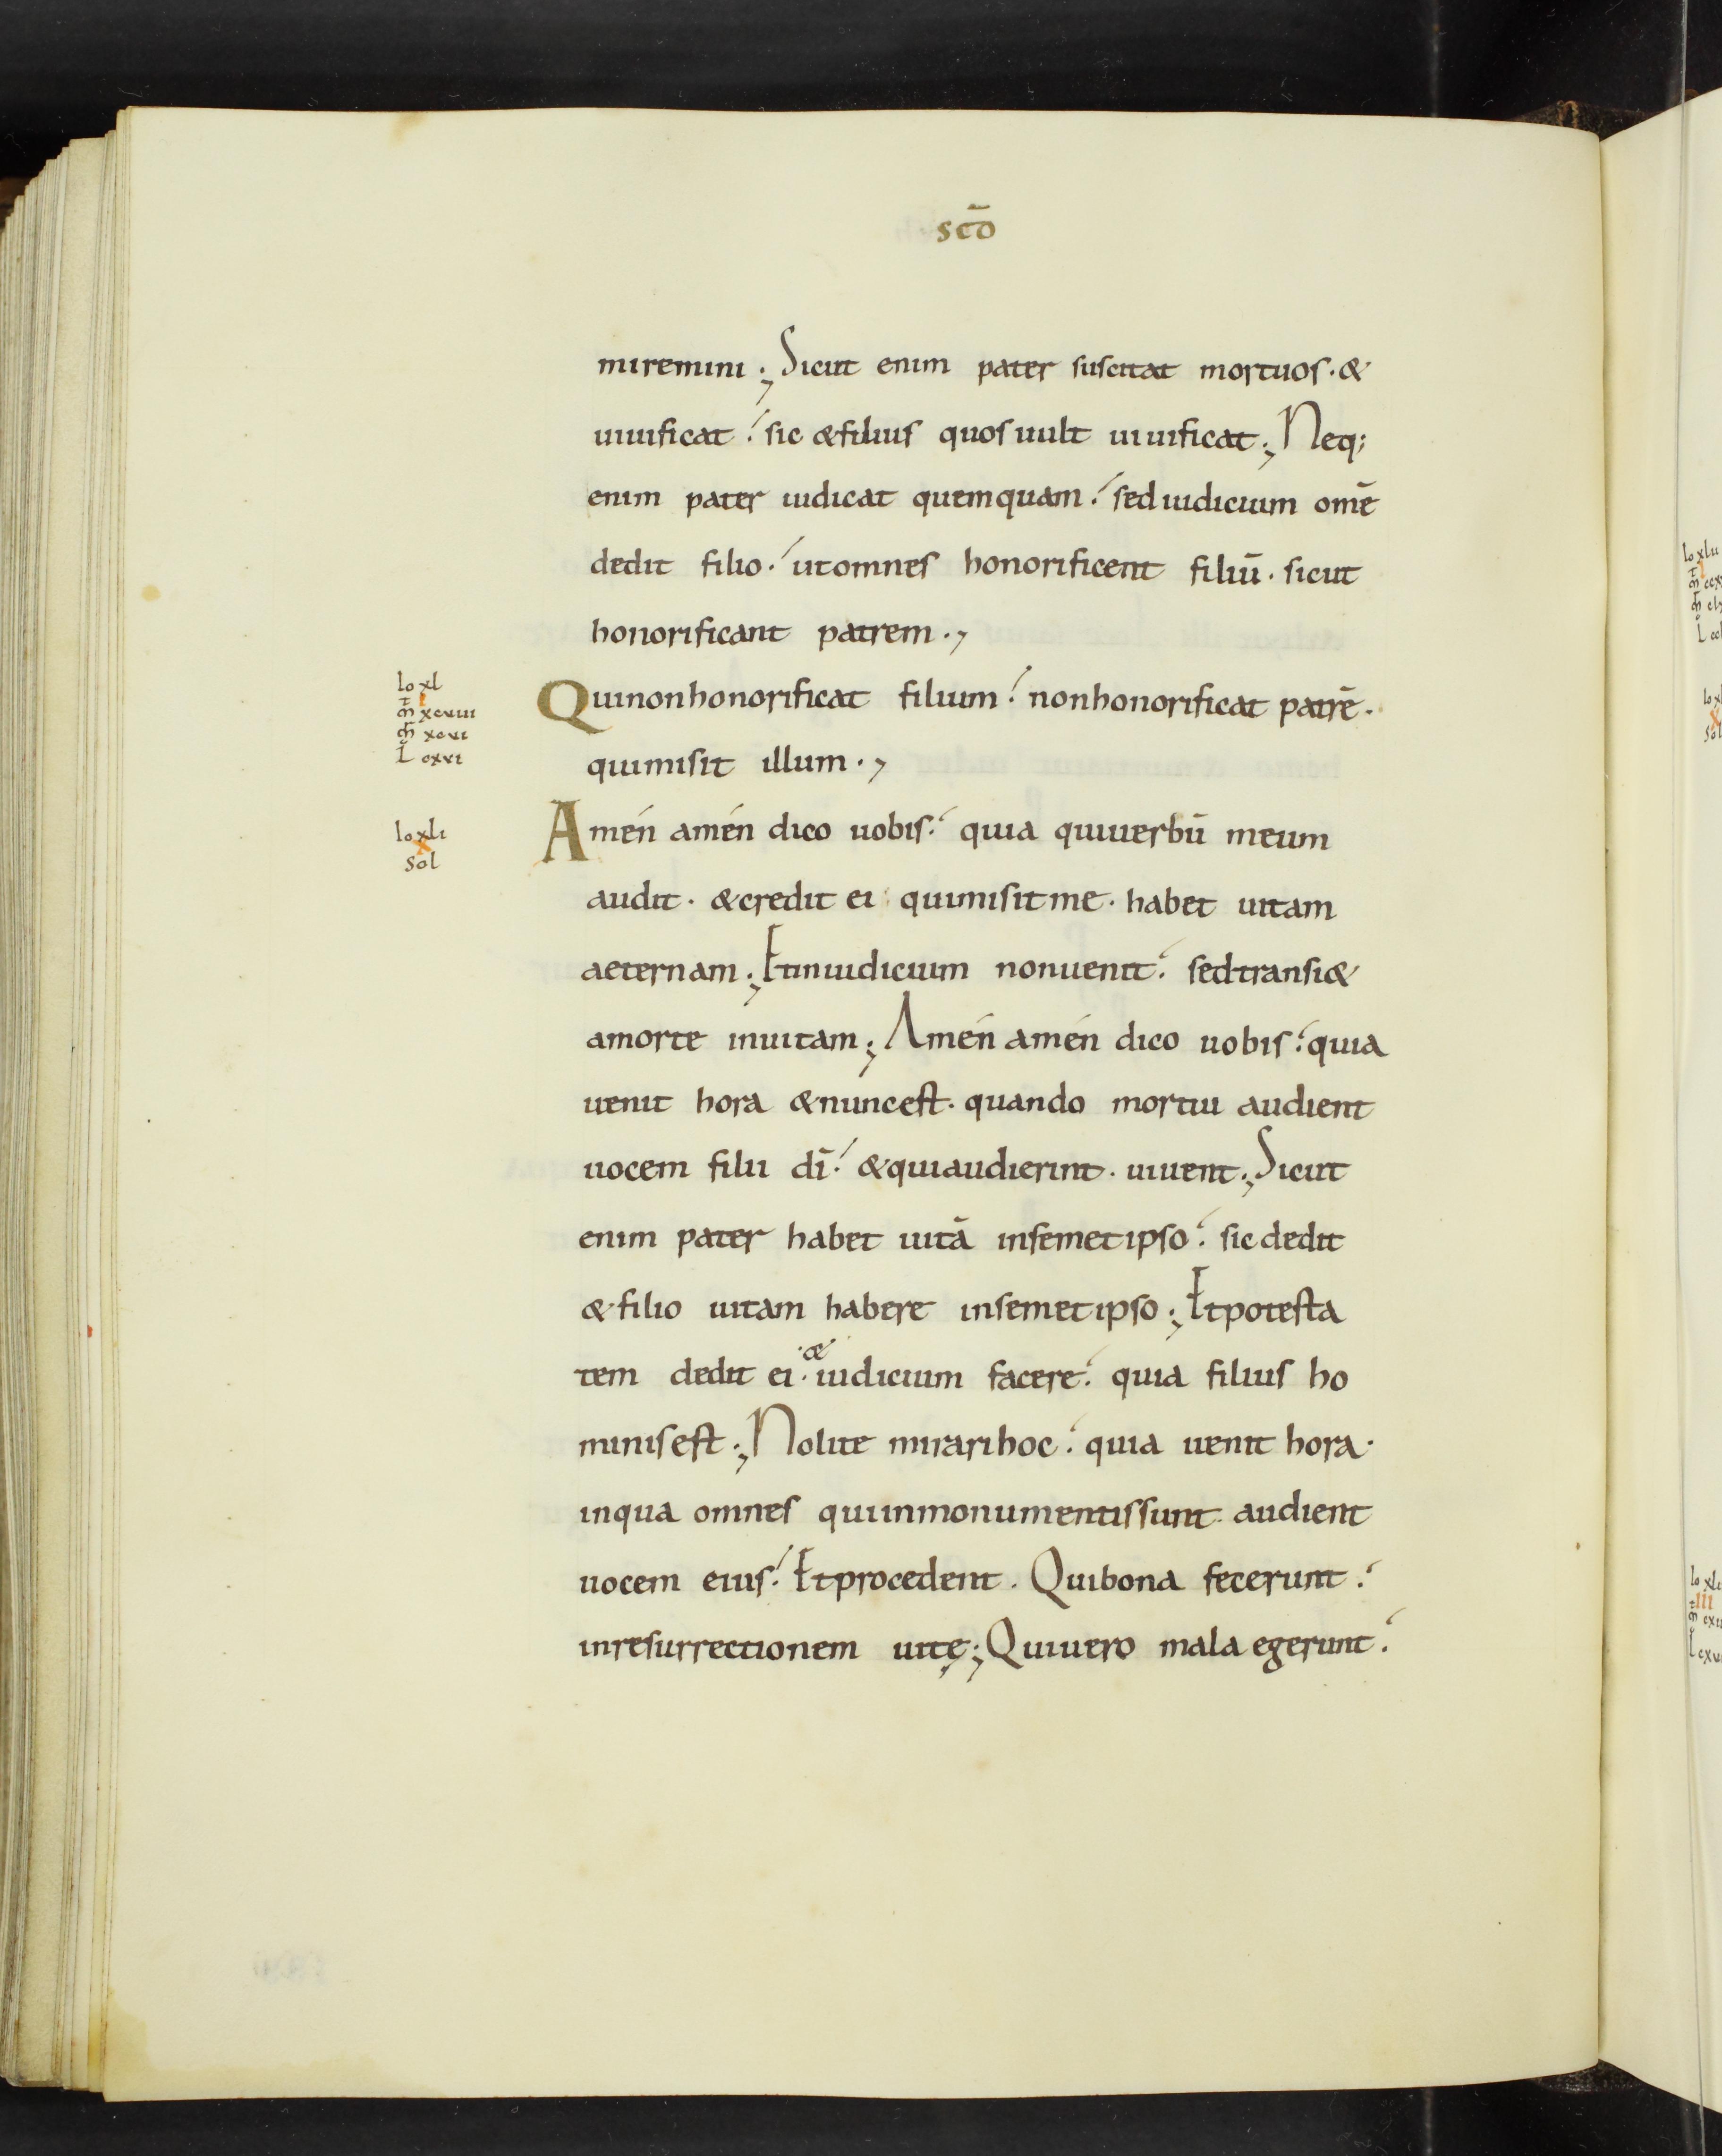 scō
miremini; Sicut enim pater suscitat mortuos. &
uiuificat. sic &filius quos uult uiuificat; Neq;
enim pater iudicat quemquam. sed iudicium omē
dedit filio. ut omnes honorificent filiū. sicut
honorificant patrem.,
lo xl
I
m̄ xcuiii
m̄r xcui
L cxui
Qui non honorificat filium. non honorificat patrē.
qui misit illum.,
lo xli
X
sol
Amén amén dico uobis. quia qui uerbū meum
audit. &credit ei qui misit me. habet uitam
aeternam; Et in iudicium non uenit. sed transi&
a morte in uitam; Amén amén dico uobis. quia
uenit hora &nunc est. quando mortui audient
uocem filii dī. &qui audierint. uiuent; Sicut
enim pater habet uitā in semet ipso. sic dedit
&filio uitam habere in semet ipso; Et potesta
tem dedit ei. & iudicium facere. quia filius ho
minis est; Nolite mirari hoc. quia uenit hora.
in qua omnes qui in monumentis sunt. audient
uocem eius. Et procedent. Qui bona fecerunt.
in resurrectionem uitę; Qui uero mala egerunt.